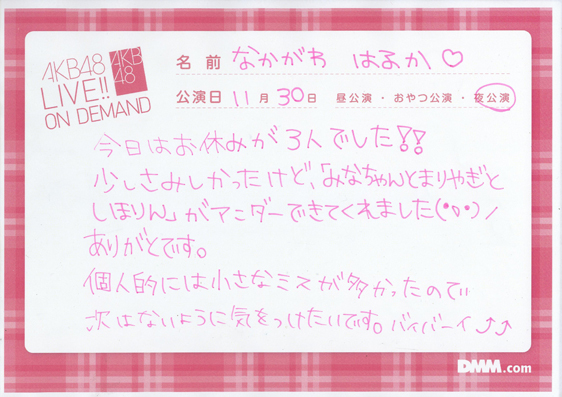 AKB48
LIVE!!
ON DEMAND
AKB
48
名前 なかがわ はるか♡
公演日 11月30日 昼公演・おやつ公演・夜公演
今日はお休みが3人でした!!
少しさみしかったけど、「みなちゃんとまりやぎと
しほりん」がアンダーできてくれました(•̀ㅂ•́)/
ありがとです。
個人的には小さなミスが多かったのでぃ
次はないように気をつけたいです。バイバーイ⤴⤴
DMM.com